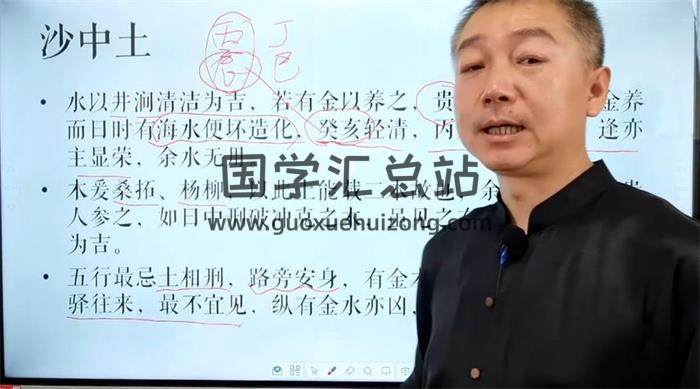 沙中土
丙 丁
辰 巳
水以井涧清洁为吉，若有金以养之，贵 金养
而日时有海水便坏造化，癸亥轻清，丙 逢亦
主显荣，余水无
国学汇总站
木爱桑拓、杨柳 以此土能载 木故也 余 贵
www.guoxuehuizong.com
人参之，如日中刑破冲真之木，虽见之
为吉。
五行最忌土相刑，路旁安身，有金木
驿往来，最不宜见，纵有金水亦凶，